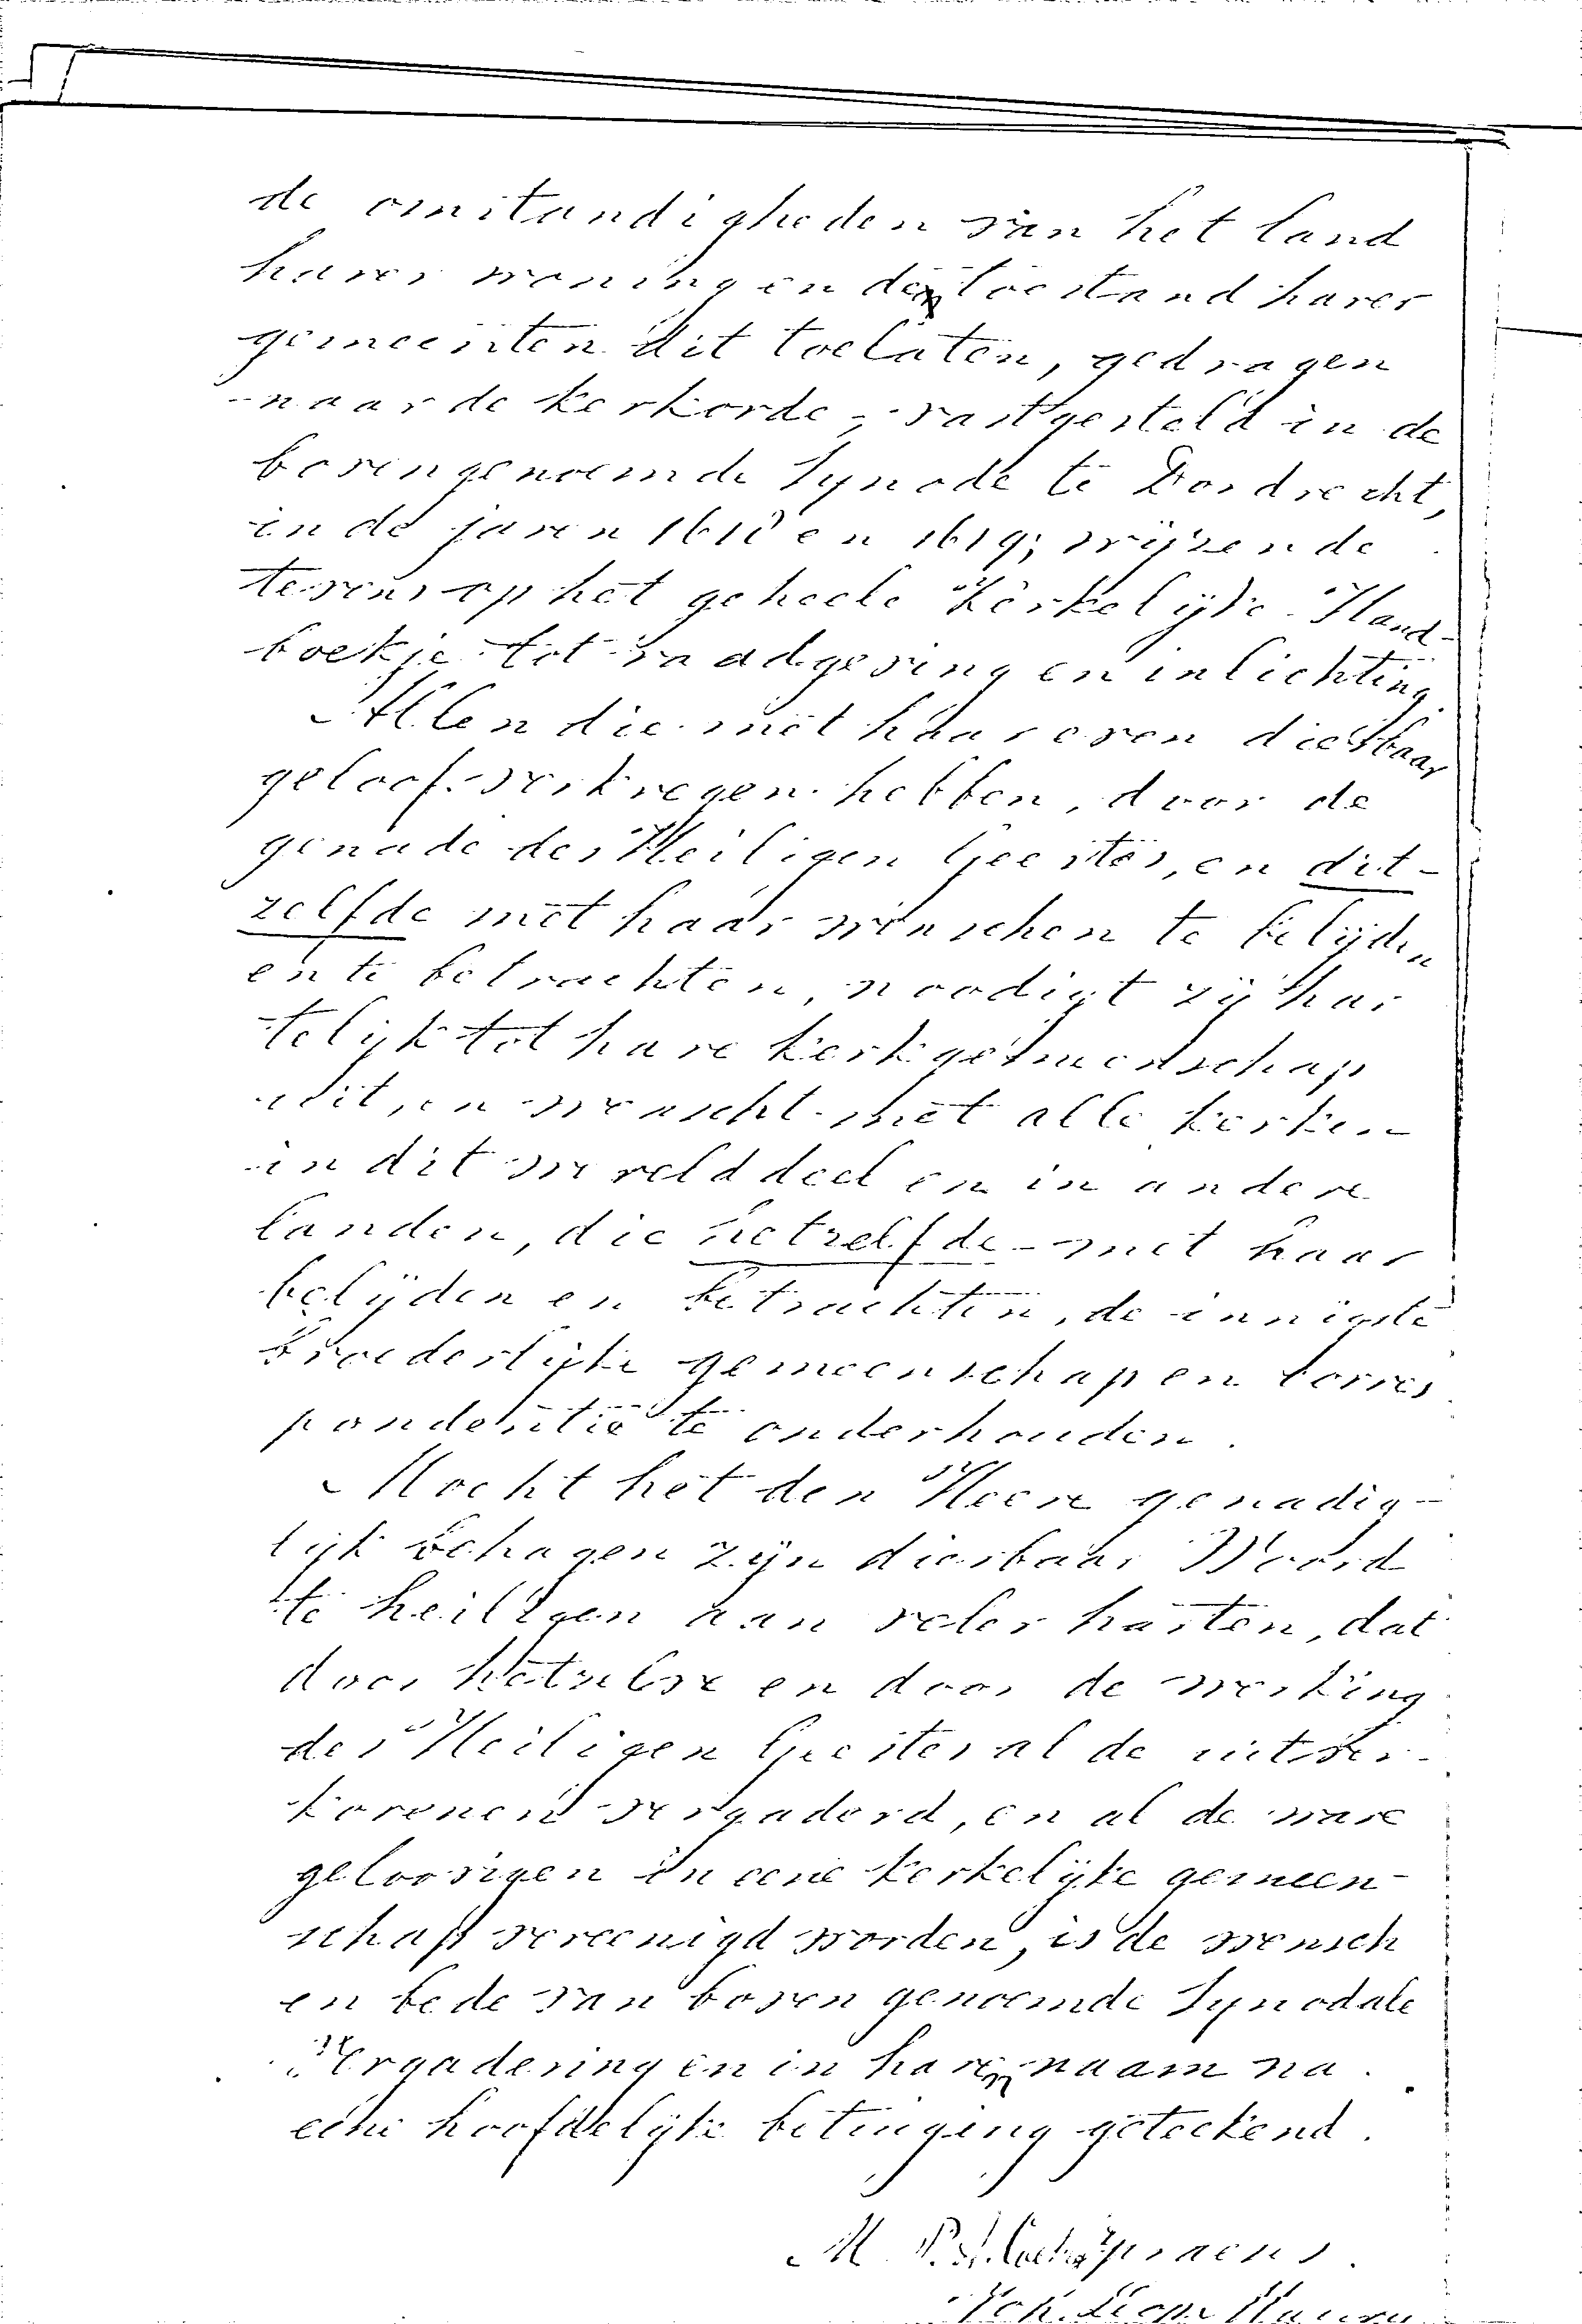 de omstandigheden van het land
harer woning en de toestand harer
gemeenten dit toelaten, gedragen
naar de kerkorde, vastgesteld in de
bovengenoemde Synode te Dordrecht,
in de jaren 1618 en 1619; wijzende
tevens op het geheele Kerkelijke Hand-
boekje tot raadgeving en inlichting.
Allen die met haar even dierbaar
geloof verkregen hebben, door de
genade des Heiligen Geestes, en dit-
zelfde met haar wenschen te belijden
en te betrachten, noodigt zij har
telijk tot hare kerkgemeenschap
uit, en wenscht met alle kerken
in dit werelddeel en in andere
landen, die hetzelfde met haar
belijden en betrachten, de innigste
broederlijke gemeenschap en corres
pondentie te onderhouden.
Mocht het den Heere genadig-
lijk behagen zijn dierbaar Woord
te heiligen aan veler harten, dat
door hetzelve en door de werking
des Heiligen Geestes al de uitver-
korenen vergaderd, en al de ware
geloovigen in eene kerkelijke gemeen-
schap vereenigd worden, is de wensch
en bede van boven genoemde Synodale
Vergadering en in haren naam na
eene hoofdelijke betuiging geteekend.
M. P. A.